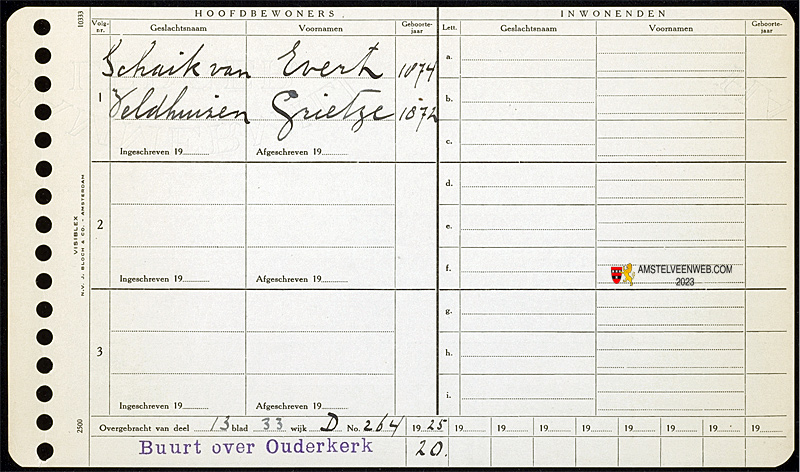 HOOFDBEWONERS. INWONENDEN
Volg-nr. Geslachtsnaam Voornamen Geboorte-jaar Lett. Geslachtsnaam Voornamen Geboorte-jaar
Schaik van Evert 1874 a.
1 Veldhuisen Grietze 1872 b.
Ingeschreven 19 Afgeschreven 19 c.
d.
2 e.
Ingeschreven 19 Afgeschreven 19 f.
AMSTELVEENWEB.COM
2023
g.
3 h.
Ingeschreven 19 Afgeschreven 19 i.
Overgebracht van deel 13 blad 33 wijk D No. 264 1925 19 19 19 19 19 19 19 19
Buurt over Ouderkerk 20.
10333
VISIBLEX
N.V. J. BLOCH & CO. - AMSTERDAM
2500